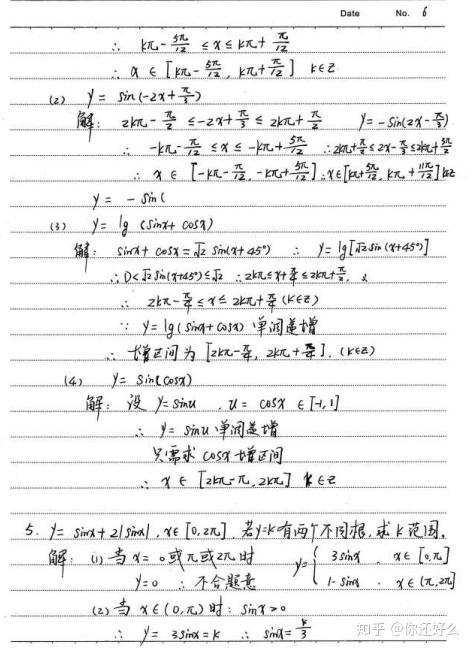 Date No. 6
∴ kπ - 5π/12 ≤ x ≤ kπ + π/12
∴ x ∈ [kπ - 5π/12, kπ + π/12] k∈Z
(2) y = sin(-2x + π/3)
解: 2kπ - π/2 ≤ -2x + π/3 ≤ 2kπ + π/2 y = -sin(2x - π/3)
∴ -kπ - π/12 ≤ x ≤ -kπ + 5π/12 ∴ 2kπ + π/2 ≤ 2x - π/3 ≤ 2kπ + 3π/2
∴ x ∈ [-kπ - π/12, -kπ + 5π/12] ∴ x∈[kπ + 5π/12, kπ + 11π/12] k∈Z
y = - sin(
(3) y = lg (sinx + cosx)
解: sinx + cosx = √2 sin(x+45°) ∴ y = lg[√2 sin(x+45°)]
∴ 0 < √2 sin(x+45°) ≤ √2 ∴ 2kπ ≤ x + π/4 ≤ 2kπ + π/2,
∴ 2kπ - π/4 ≤ x ≤ 2kπ + π/4 (k∈Z)
∵ y = lg(sinx + cosx) 单调递增
∴ 增区间为 [2kπ - π/4, 2kπ + π/4], (k∈Z)
(4) y = sin(cosx)
解: 设 y = sinu , u = cosx ∈ [-1, 1]
∴ y = sinu 单调递增
只需求 cosx 增区间
∴ x ∈ [2kπ - π, 2kπ] k∈Z
5. y = sinx + 2|sinx|, x∈[0, 2π], 若y=k有两个不同根, 求k范围.
解: (1) 当 x = 0或π或2π时 y = { 3sinx , x∈[0, π]
y = 0 ∴ 不合题意 1-sinx , x∈(π, 2π]
(2) 当 x∈(0, π)时: sinx > 0
∴ y = 3sinx = k ∴ sinx = k/3
知乎 @你还好么